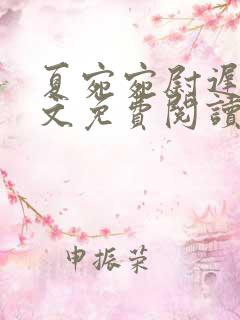 夏宛宛尉遲
文免費閱讀
申振荣